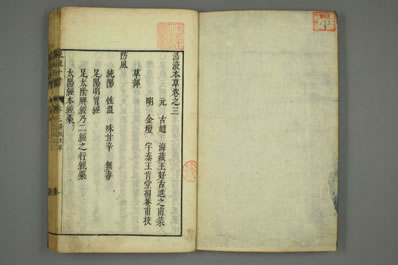 湯液本草卷之三
元 古趙 海藏王好古進之甫集
明 金壇 宇泰王肯堂損菴甫校
草部
防風
純陽 性溫 味甘辛 無毒
足陽明胃經
足太陰脾經乃二經之行經藥
太陽經本經藥